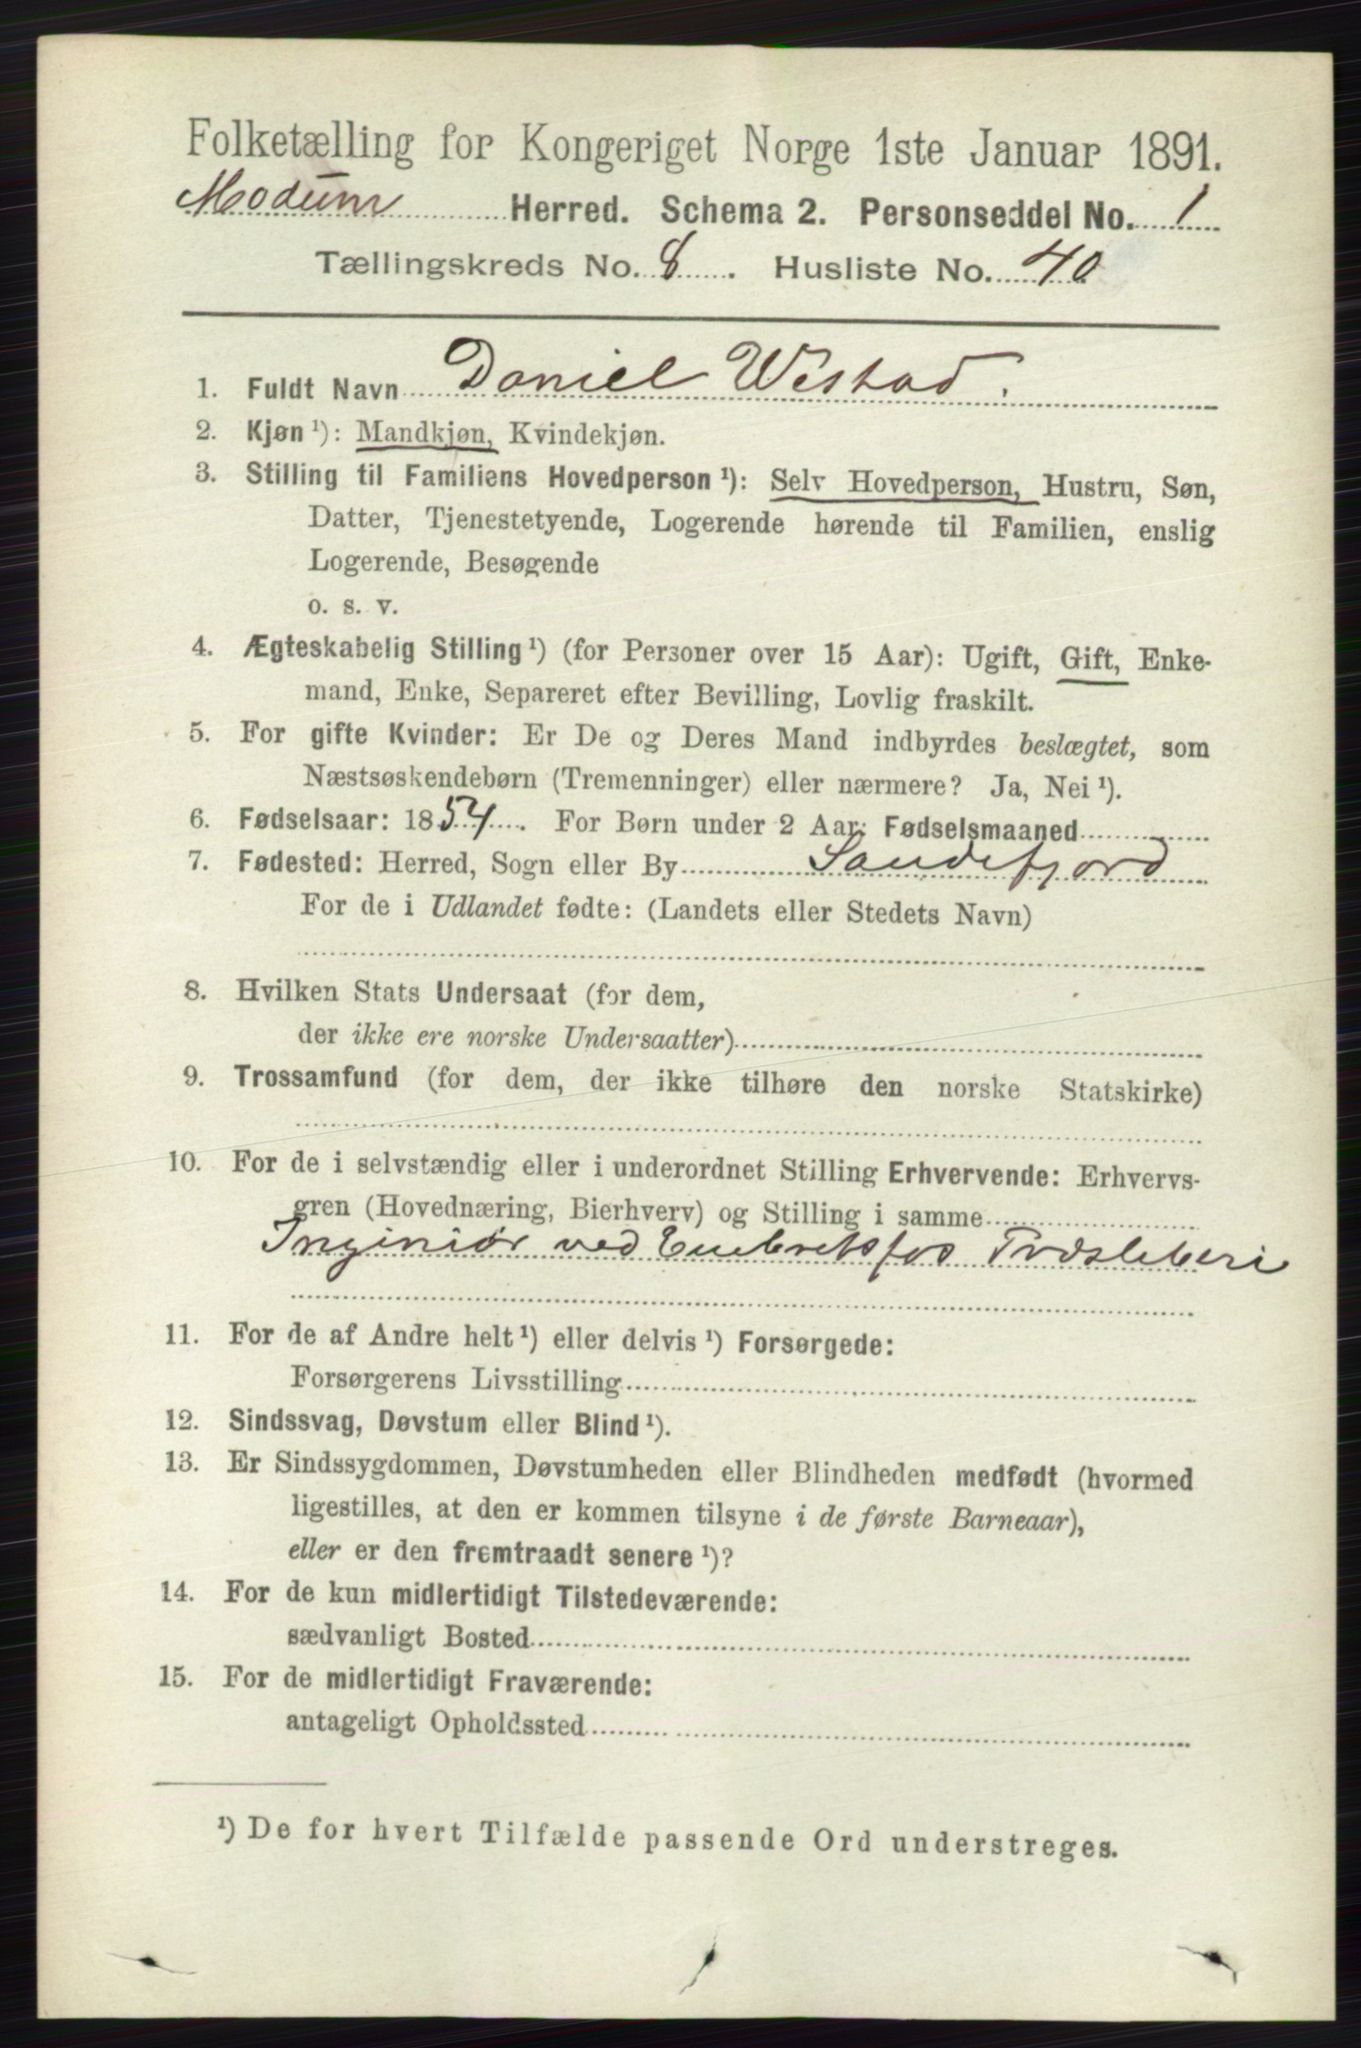 Folketælling for Kongeriget Norge 1ste Januar 1891.
Modum Herred. Schema 2. Personseddel No. 1
Tællingskreds No. 8. Husliste No. 40
1. Fuldt Navn Daniel Westad.
2. Kjøn ¹): Mandkjøn, Kvindekjøn.
3. Stilling til Familiens Hovedperson ¹): Selv Hovedperson, Hustru, Søn,
Datter, Tjenestetyende, Logerende hørende til Familien, enslig
Logerende, Besøgende
o. s. v.
4. Ægteskabelig Stilling ¹) (for Personer over 15 Aar): Ugift, Gift, Enke-
mand, Enke, Separeret efter Bevilling, Lovlig fraskilt.
5. For gifte Kvinder: Er De og Deres Mand indbyrdes beslægtet, som
Næstsøskendebørn (Tremenninger) eller nærmere? Ja, Nei ¹).
6. Fødselsaar: 1854. For Børn under 2 Aar: Fødselsmaaned
7. Fødested: Herred, Sogn eller By Sandefjord
For de i Udlandet fødte: (Landets eller Stedets Navn)
8. Hvilken Stats Undersaat (for dem,
der ikke ere norske Undersaatter)
9. Trossamfund (for dem, der ikke tilhøre den norske Statskirke)
10. For de i selvstændig eller i underordnet Stilling Erhvervende: Erhvervs-
gren (Hovednæring, Bierhverv) og Stilling i samme
Ingeniør ved Embretsfos Træsleberi
11. For de af Andre helt ¹) eller delvis ¹) Forsørgede:
Forsørgerens Livsstilling
12. Sindssvag, Døvstum eller Blind ¹).
13. Er Sindssygdommen, Døvstumheden eller Blindheden medfødt (hvormed
ligestilles, at den er kommen tilsyne i de første Barneaar),
eller er den fremtraadt senere ¹)?
14. For de kun midlertidigt Tilstedeværende:
sædvanligt Bosted
15. For de midlertidigt Fraværende:
antageligt Opholdssted
¹) De for hvert Tilfælde passende Ord understreges.